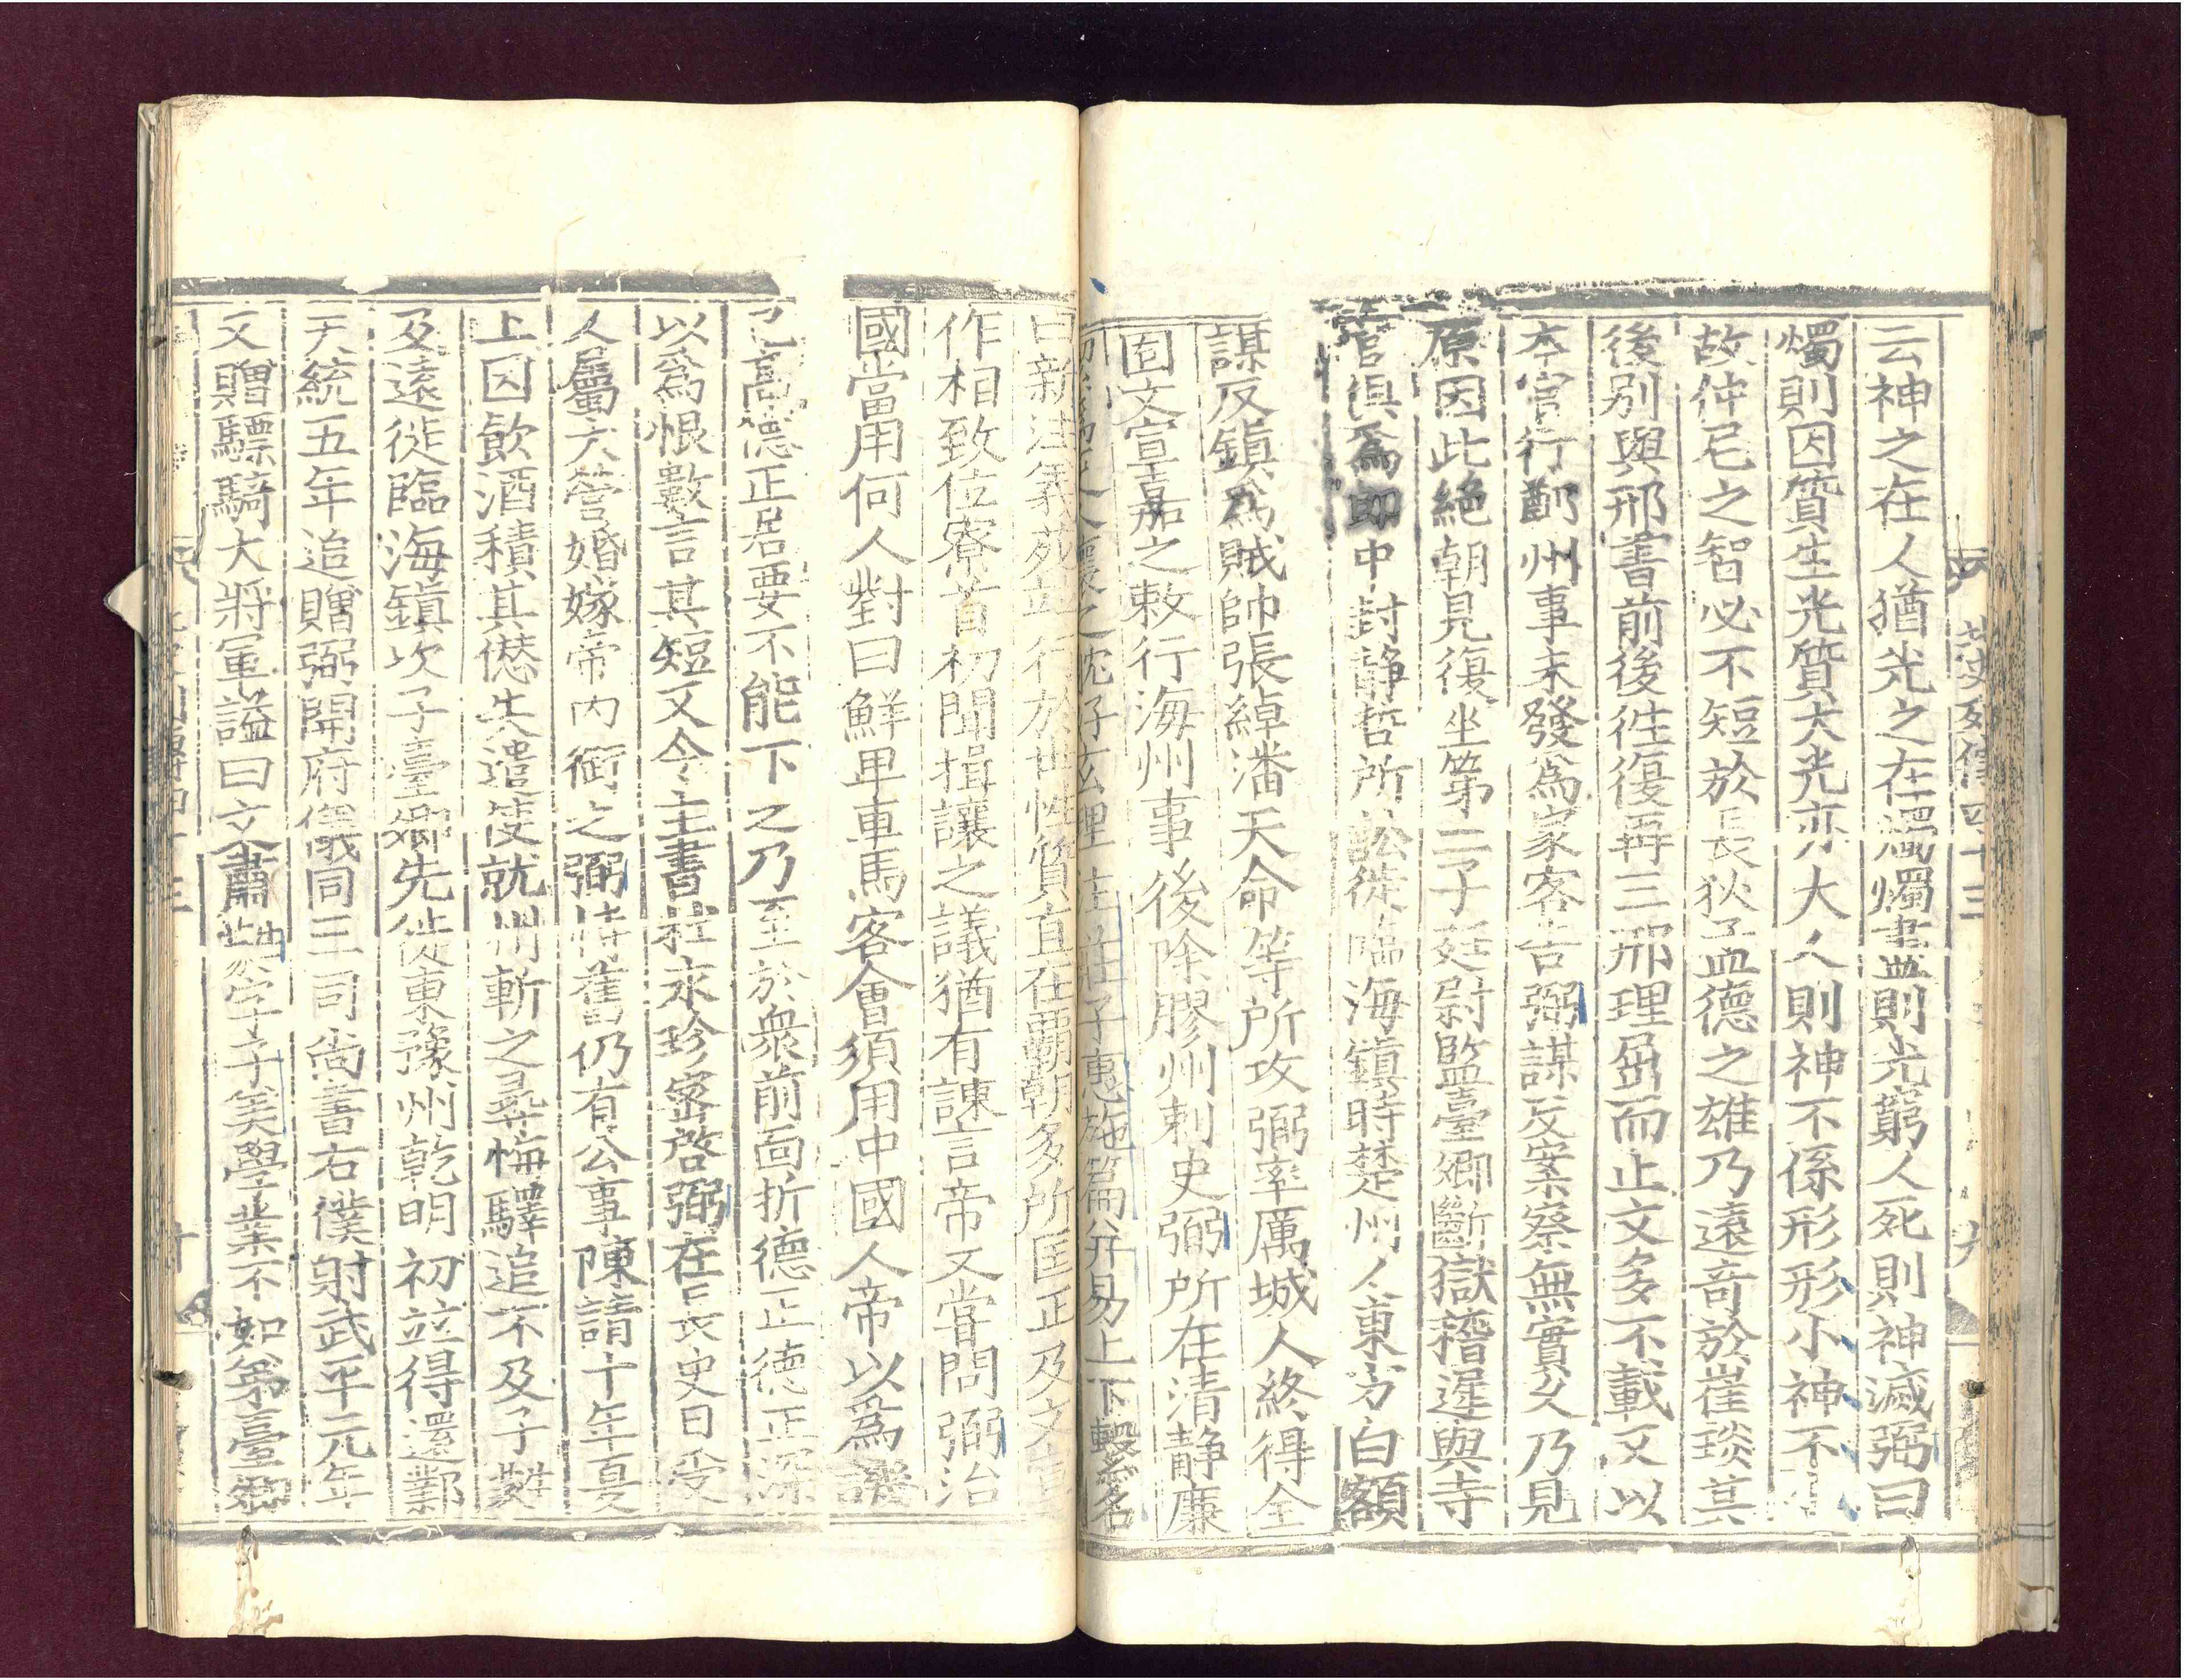 北史列傳四十三 九
云神之在人猶光之在燭燭盡則光窮人死則神滅弼曰
燭則因質生光質大光亦大人則神不係形形小神不
故仲尼之智必不短於長狄孟德之雄乃遠奇於崔琰其
後別與邢書前後往復再三邢理屈而止文多不載又以
本官行鄭州事未發爲家客告弼謀反案察無實久乃見
原因此絶朝見復坐第二子廷尉監臺卿斷獄稽遲與寺
官俱爲郎中封静哲所訟徙臨海鎮時楚州人東方白額
謀反鎮爲賊帥張綽潘天命等所攻弼率厲城人終得全
固文宣嘉之敕行海州事後除膠州刺史弼所在清静廉
人懷之耽好玄理注莊子惠施篇并易上下繫名
曰新注義苑並行於世性質直在霸朝多所匡正及文宣
作相致位寮首初聞揖讓之議猶有諫言帝又嘗問弼治
國當用何人對曰鮮卑車馬客會須用中國人帝以爲譏
己高德正居要不能下之乃至於衆前面折德正德正深
以爲恨數言其短又令主書杜永珍密啓弼在長史日受
人屬大營婚嫁帝内銜之弼恃舊仍有公事陳請十年夏
上因飲酒積其僁失遣使就州斬之尋悔驛追不及子蕤
及遠徙臨海鎮次子臺卿先徙東豫州乾明初並得還鄴
天統五年追贈弼開府儀同三司尚書右僕射武平元年
又贈驃騎大將軍謚曰文肅蕤字子美學業不如弟臺卿